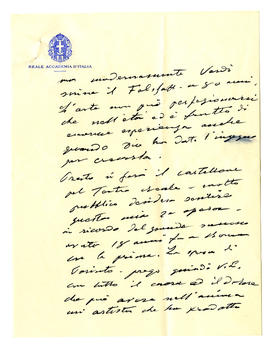 REALE ACCADEMIA D'ITALIA
ma modernamente Verdi
scrisse il Falstaff a 80 anni.
L'arte non può perfezionarsi
che nell'età ed è frutto di
esperienza anche
quando Dio ha dato l'ingegno
per crearla.
Presto si farà il cartellone
pel Teatro Reale - molto
pubblico desidera sentire
questa mia opera
in ricordo del grande successo
avuto 18 anni fa a Roma
con la prima. La sposa di
Corinto. prego quindi V.E.
con tutto il cuore ed il dolore
che può avere nell'anima
un artista che ha prodotto